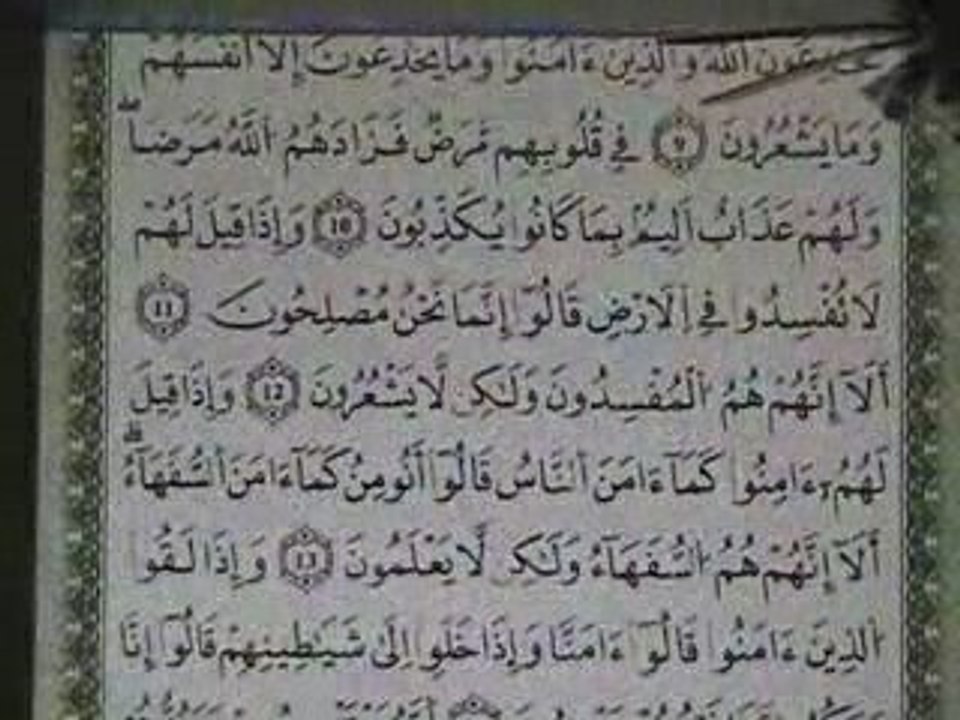 يخدعون الله والذين ءامنوا وما يخدعون إلا أنفسهم
وَمَا يَشْعُرُونَ 9 فِي قُلُوبِهِم مَّرَضٌ فَزَادَهُمُ اللَّهُ مَرَضاً
وَلَهُمْ عَذَابٌ أَلِيمٌ بِمَا كَانُوا يُكَذِّبُونَ 10 وَإِذَا قِيلَ لَهُمْ
لَا تُفْسِدُوا فِي الَارْضِ قَالُوٓا إِنَّمَا نَحْنُ مُصْلِحُونَ 11
أَلَآ إِنَّهُمْ هُمُ الْمُفْسِدُونَ وَلَٰكِن لَّا يَشْعُرُونَ 12 وَإِذَا قِيلَ
لَهُمُۥٓ ءَامِنُوا كَمَآ ءَامَنَ النَّاسُ قَالُوٓا أَنُومِنُ كَمَآ ءَامَنَ السُّفَهَآءُ
أَلَآ إِنَّهُمْ هُمُ السُّفَهَآءُ وَلَٰكِن لَّا يَعْلَمُونَ 13 وَإِذَا لَقُوا
الَّذِينَ ءَامَنُوا قَالُوٓا ءَامَنَّا وَإِذَا خَلَوِا الَىٰ شَيَٰطِينِهِمْ قَالُوٓا إِنَّا